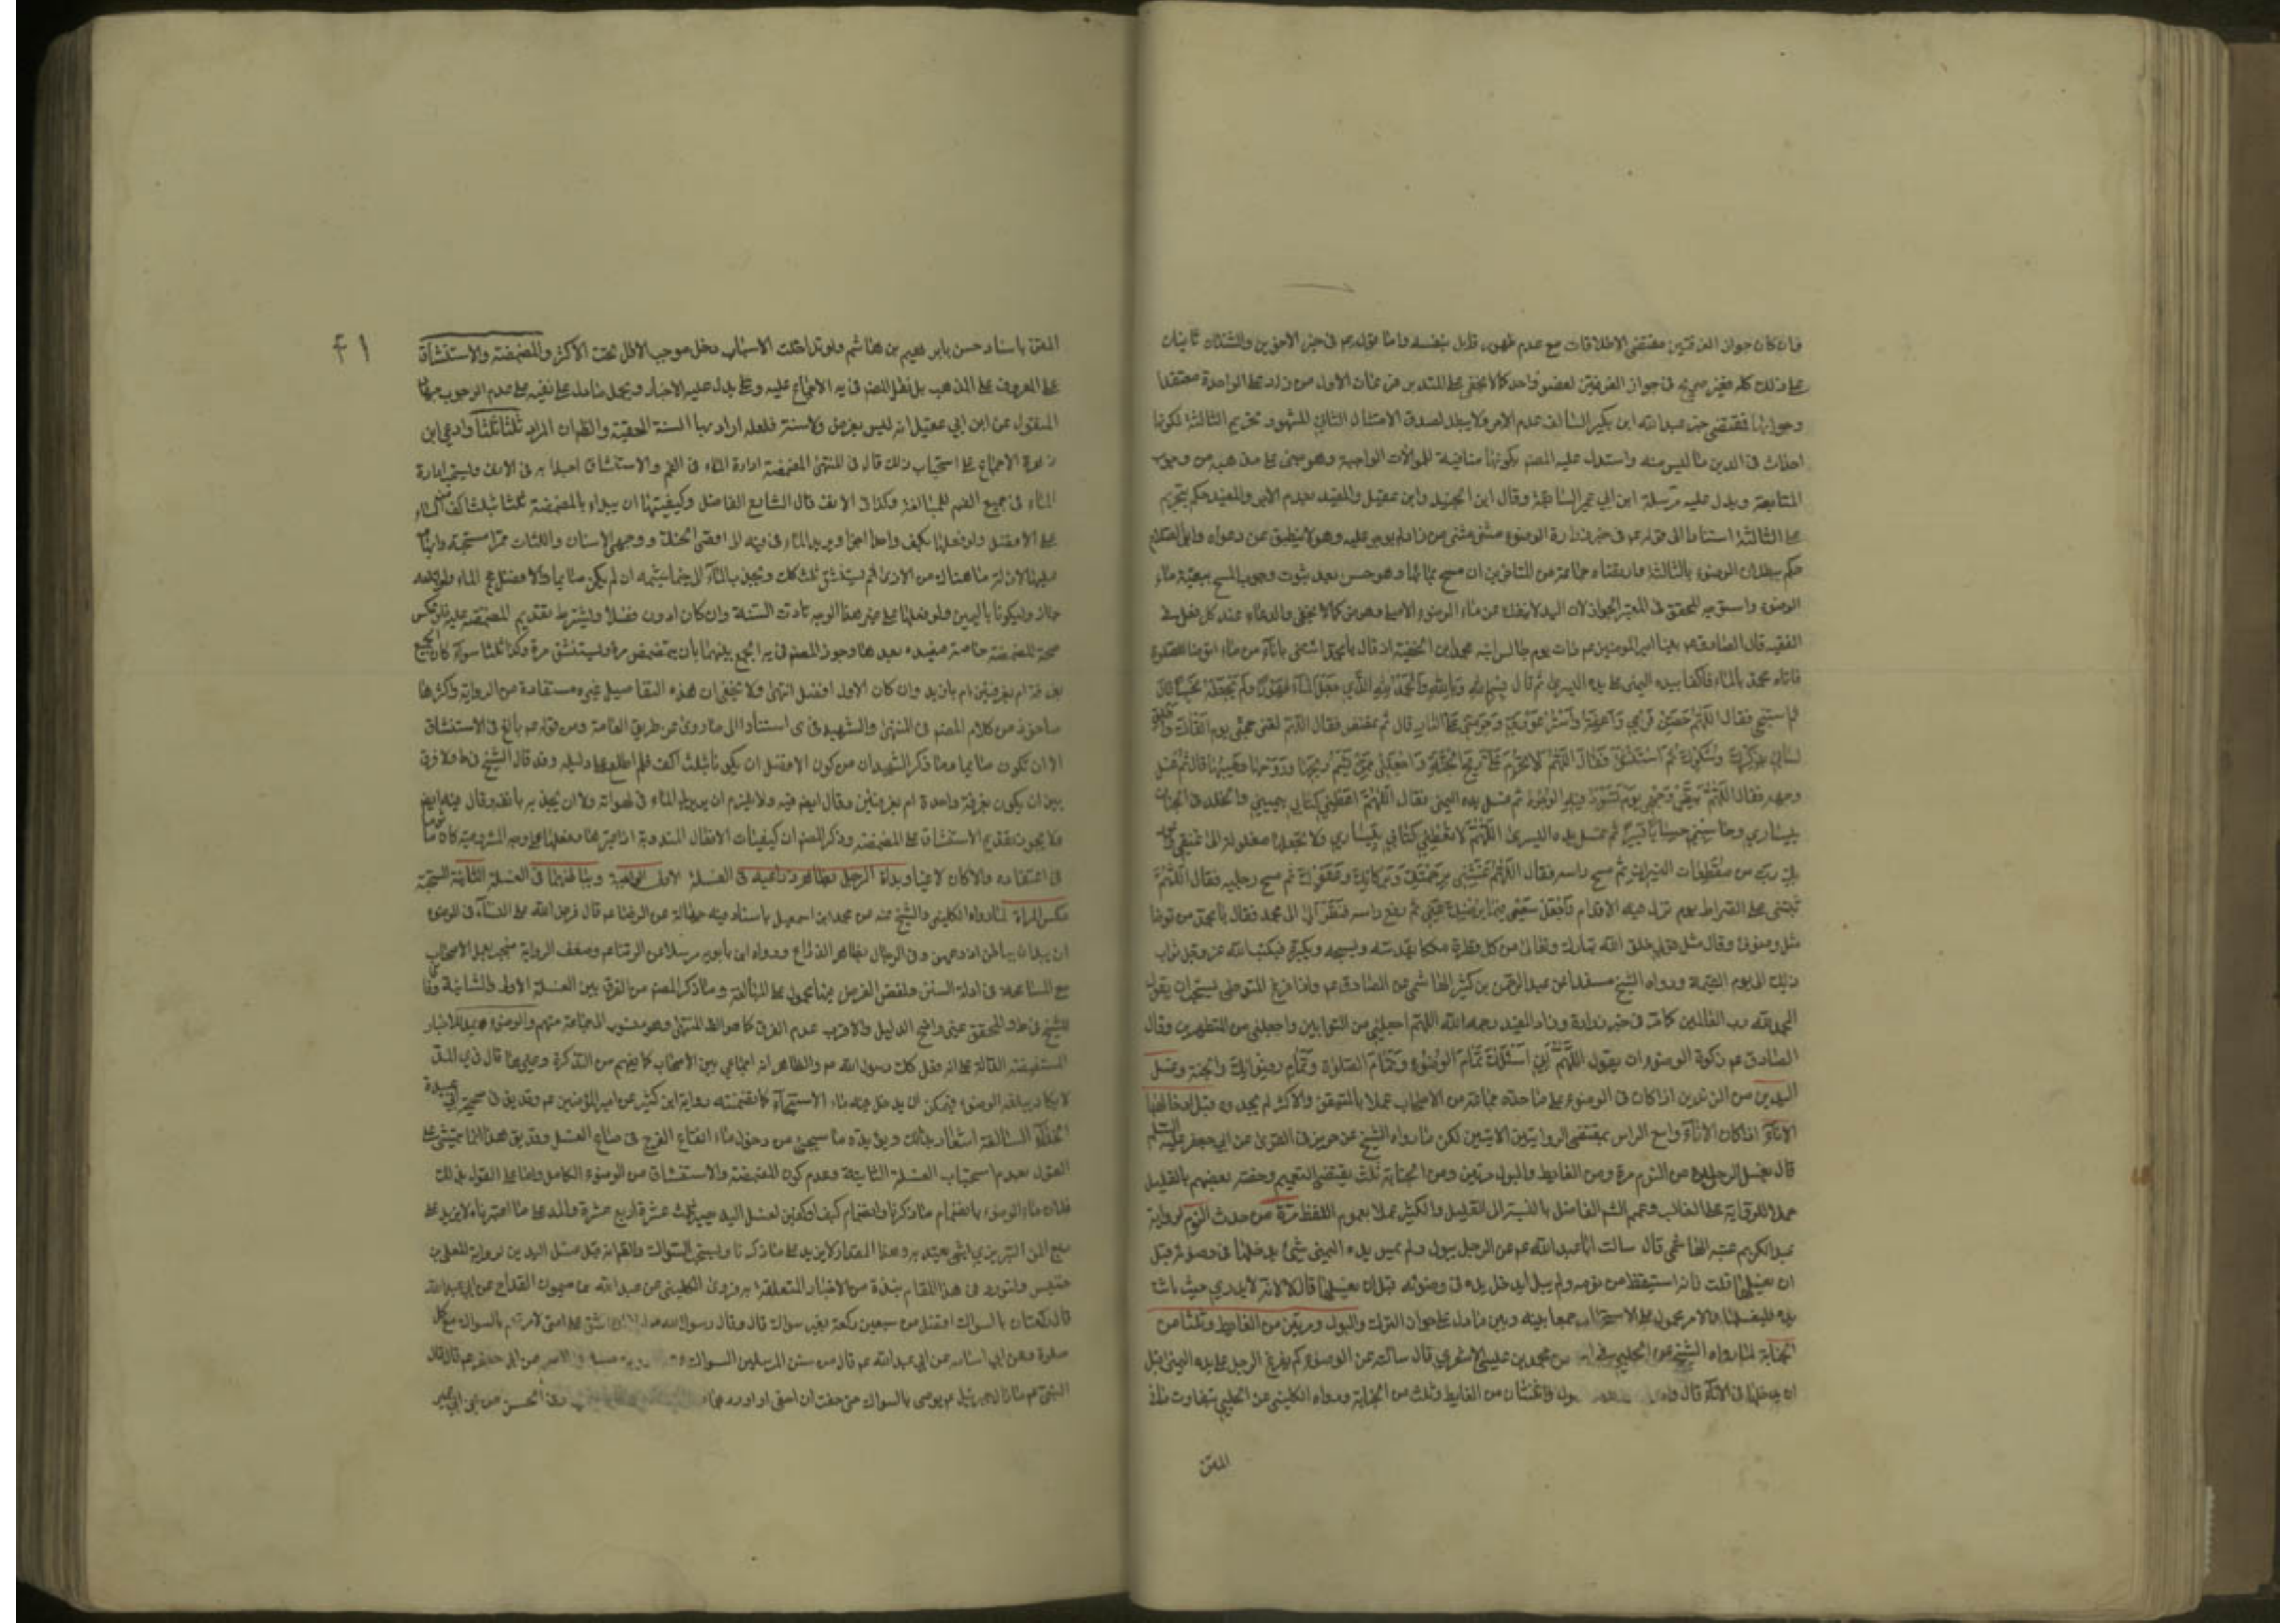 فان كان جواز الغرفتين مقتضى الاطلاقات مع عدم ظهور قايل بنفسه واما قوله عم في خبر الاخوين والثنتان تاتيان
على ذلك كله فغير صريح في جواز الغرفتين لعضو واحد كما لا يخفى على المتدبر من زاد على الواحدة معتقدا
وجوبها فمقتضى خبر عبد الله ابن بكير السالف عدم الاجر ولا يبطل لصدق الامتثال الثاني المشهور تحريم الثالثة لكونها
احداث في الدين ما ليس منه واستدل عليه المصنف بكونها منافية للموالات الواجبة وهو مبني على مذهبه من وجوب
المتابعة ويدل عليه مرسلة ابن ابي عمير السابقة وقال ابن الجنيد وابن عقيل والمفيد بعدم
على الثالثة استنادا الى قوله عم في خبر زرارة الوضوء مثنى مثنى من زاد لم يوجر عليه وهو لا ينطبق عن دعواه
حكم ببطلان الوضوء بالثالثة جماعة من المتاخرين ان مسح بمائها وهو حسن بعد ثبوت وجوب المسح ببقية ماء
الوضوء المحقق في المعتبر الجواز لان اليد لا ينفك عن ماء الوضوء الاصلي وهو كما لا يخفى والدعاء عند كل فعل في
الفقيه قال الصادق عم بينا امير المؤمنين عم ذات يوم جالس ابنه محمد ابن الحنفية اذ قال يا محمد ائتني باناء من ماء اتوضا للصلوة
فاتاه محمد بالماء فاكفا بيده اليمنى على يده اليسرى ثم قال بسم الله وبالله والحمد لله الذي جعل الماء طهورا ولم يجعله نجسا قال
ثم استنجى فقال اللهم حصن فرجي واعفه واستر عورتي وحرمني على النار قال ثم تمضمض فقال اللهم لقني حجتي يوم القاك واطلق
لساني بذكرك وشكرك ثم استنشق فقال اللهم لا تحرم علي ريح الجنة واجعلني ممن يشم ريحها وروحها وطيبها قال ثم غسل
وجهه فقال اللهم بيض وجهي يوم تسود فيه الوجوه ثم غسل يده اليمنى فقال اللهم اعطني كتابي بيميني والخلد في الجنان
بيساري وحاسبني حسابا يسيرا ثم غسل يده اليسرى اللهم لا تعطني كتابي بيساري ولا تجعلها مغلولة الى عنقي
بك رب من مقطعات النيران ثم مسح راسه فقال اللهم غشني برحمتك وبركاتك وعفوك ثم مسح رجليه فقال اللهم
ثبتني على الصراط يوم تزل فيه الاقدام واجعل سعيي فيما يرضيك عني ثم رفع راسه فنظر الى محمد فقال يا محمد من توضا
مثل وضوئي وقال مثل قولي خلق الله تبارك وتعالى من كل قطرة ملكا يقدسه ويسبحه ويكبره فيكتب الله عز وجل ثواب
ذلك الى يوم القيمة ورواه الشيخ مسندا عن عبد الرحمن بن كثير الهاشمي عن الصادق عم واذا فرغ المتوضي يستحب ان يقول
الحمد لله رب العالمين كما في خبر زرارة وزاد المفيد رحمه الله اللهم اجعلني من التوابين واجعلني من المتطهرين وقال
الصادق عم زكوة الوضوء ان يقول اللهم اني اسئلك تمام الوضوء وتمام الصلوة وتمام رضوانك والجنة وغسل
اليدين من الزندين اذا كان في الوضوء على ما حده جماعة من الاصحاب عملا بالمتيقن والاكثر لم يحدوه قبل ادخالهما
الاناء اذا كان الاناء واسع الراس بمقتضى الروايتين الاتيتين لكن ما رواه الشيخ عن حريز في القوي عن ابي جعفر عليه السلم
قال يغسل الرجل يده من النوم مرة ومن الغايط والبول مرتين ومن الجنابة ثلث يقتضي التعميم وخصه بعضهم بالقليل
حملا للرواية على الغالب وعمم الشه الفاضل بالنسبة الى القليل والكثير عملا بعموم اللفظ مرة من حدث النوم لرواية
عبد الكريم عتبه الهاشمي قال سالت ابا عبد الله عم عن الرجل يبول ولم يمس يده اليمنى شئ يدخلها في وضوئه قبل
ان يغسلها قلت فانه استيقظ من نومه ولم يبل ايدخل يده في وضوئه قبل ان يغسلها قال لا لانه لا يدري حيث باتت
يده فليغسلها والامر محمول على الاستحباب جمعا بينه وبين ما دل على جواز الترك والبول ومرتين من الغايط وثلثا من
الجنابة لما رواه الشيخ عن الحلبي عن محمد بن عيسى الاشعري قال سالته عن الوضوء كم يفرغ الرجل على يده اليمنى قبل
ان يدخلها في الاناء قال واثنتان من الغايط وثلث من الجنابة ورواه الكليني عن الحلبي بتفاوت
المتن
٤١
المتن باسناد حسن بابرهيم بن هاشم ولو تداخلت الاسباب دخل موجب الاقل تحت الاكثر والمضمضة والاستنشاق
على المعروف على المذهب بل نقل المصنف في يه الاجماع عليه ويدل عليه الاخبار ويحمل ما دل على نفيه على عدم الوجوب
المنقول عن ابن ابي عقيل انه ليس بفرض ولا سنة فلعله اراد بها السنة الحقيقة والظهران المراد ثلثا ثلثا وادعى ابن
زهرة الاجماع على استحباب ذلك قال في المنتهى المضمضة ادارة الماء في الفم والاستنشاق اجتذابه في الانف ويستحب ادارة
الماء في جميع الفم للمبالغة وكذا في الانف قال الشارع الفاضل وكيفيتها ان يبداء بالمضمضة ثلثا بثلث اكف من الماء
على الافضل ولو فعلها بكف واحد اجزا ويدير الماء في فيه الى اقصى الحنك ووجهي الاسنان واللثات
ما هناك من الاذى ثم يستنشق ثلثا كك ويجذب الماء الى خياشيمه ان لم يكن صائما والافضل مج الماء ولو ابتلعه
جاز وليكونا باليمين ولو فعلهما على غير هذا الوجه تادت السنة وان كان ادون فضلا ويشترط تقديم المضمضة عليه فلو عكس
صحة المضمضة خاصة فيعيده بعدها وجوز المصنف في يه الجمع بينهما بان يتمضمض مرة ويستنشق مرة وكذا ثلثا سواء كان الجميع
بغرفة ام بغرفتين ام بازيد وان كان الاول افضل انتهى ولا يخفى ان هذه التفاصيل غير مستفادة من الرواية واكثرها
ماخوذ من كلام المصنف في المنتهى والشهيد في ى استنادا الى ما روى من طريق العامة ومن قوله عم بالغ في الاستنشاق
الا ان تكون صائما وما ذكر الشهيدان من كون الافضل ان يكونا بثلث اكف فلم اطلع على دليله وقد قال الشيخ في ط ولا فرق
بين ان يكون بغرفة واحدة ام بغرفتين وقال ايضا فيه ولا يلزم ان يدير الماء في لهواته ولا ان يجذبه بانفه وقال فيه ايضا
ولا يجوز تقديم الاستنشاق على المضمضة وذكر المصنف ان كيفيات الافعال المندوبة اذا غيرها وفعلها على وجه المشروعية كان ماثوما
في اعتقاده والا كان لاغيا وبداة الرجل بظاهر ذراعيه في الغسلة الاولى الواجبة وبباطنهما في الغسلة الثانية المستحبة
عكس المراة لما رواه الكليني والشيخ عنه عن محمد ابن اسمعيل باسناد فيه جهالة عن الرضا عم قال فرض الله على النساء في الوضوء
ان يبدان بباطن اذرعهن وفي الرجال بظاهر الذراع ورواه ابن بابويه مرسلا عن الرضا عم وضعف الرواية منجبر بعمل الاصحاب
مع المسامحة في ادلة السنن ولفظ الفرض فيها محمول على المبالغة وما ذكر المصنف من الفرق بين الغسلة الاولى والثانية وفاقا
للشيخ في ط والمحقق غير واضح الدليل والاقرب عدم الفرق كما هو ظ المنتهى وهو منسوب الى جماعة منهم والوضوء بمد للاخبار
المستفيضة الدالة على انه فعل كك رسول الله ص والظاهر انه اجماعي بين الاصحاب كما يفهم من التذكرة وغيرها قال في ى المد
لا يكاد يبلغه الوضوء فيمكن ان يدخل فيه ماء الاستنجاء كما تضمنته رواية ابن كثير عن امير المؤمنين عم وقد يق في صحيحة ابي عبيدة
الحذاء السالفة اشعار بذلك ويؤيده ما سيجئ من دخول ماء انقاع الفرج في صاع الغسل وقد يق هذا انما يتمشى على
القول بعدم استحباب الغسلة الثانية وعدم كون المضمضة والاستنشاق من الوضوء الكامل واما على القول بذلك
فلان ماء الوضوء بانضمام ما ذكرنا وانضمام كف او كفين لغسل اليد يصير ثلث عشرة او اربع عشرة والمد على ما اعتبرناه لا يزيد على
ربع المن التبريزي بشئ يعتد به وهذا المقدار لا يزيد على ما ذكرنا ويستحب السواك والظاهر انه قبل غسل اليدين لرواية المعلى بن
خنيس ولنورد في هذا المقام نبذة من الاخبار المتعلقة به فروى الكليني عن عبد الله بن ميمون القداح عن ابي عبد الله
قال ركعتان بالسواك افضل من سبعين ركعة بغير سواك قال وقال رسول الله ص لولا ان اشق على امتي لامرتهم بالسواك مع كل
صلوة وعن ابي اسامة عن ابي عبد الله عم قال من سنن المرسلين السواك عن ابي جعفر عم قال قال
النبي عم ما زال جبرئيل عم يوصي بالسواك حتى خفت ان احفى او ادرد في الحسن عن ابن ابي عمير